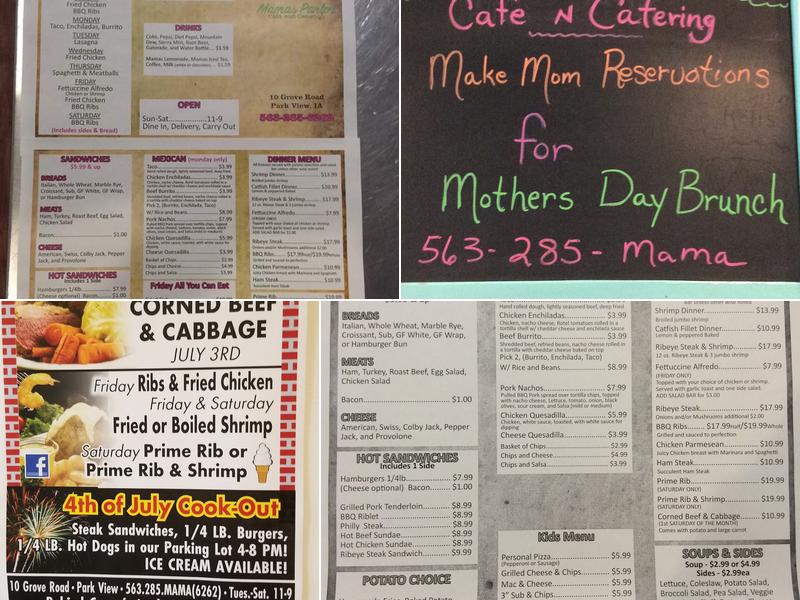 Fried Chicken
BBQ Ribs
MONDAY
Taco, Enchiladas, Burrito
TUESDAY
Lasagna
Wednesday
Fried Chicken
THURSDAY
Spaghetti & Meatballs
FRIDAY
Fettuccine Alfredo
Chicken or Shrimp
Fried Chicken
BBQ Ribs
SATURDAY
BBQ Ribs
(Includes sides & Bread)
Mamas Parlor
DRINKS
Coke, Pepsi, Diet Pepsi, Mountain
Dew, Sierra Mist, Root Beer,
Gatorade, and Water Bottle... $3.59
Mamas Lemonade, Mamas Iced Tea,
OPEN
Sun-Sat..............11-9
Dine In, Delivery, Carry Out
10 Grove Road
Park View, IA
563-285-6262
SANDWICHES
$5.99 & up
BREADS
Italian, Whole Wheat, Marble Rye,
Croissant, Sub, GF White, GF Wrap,
or Hamburger Bun
MEATS
Ham, Turkey, Roast Beef, Egg Salad,
Chicken Salad
Bacon................$1.00
CHEESE
American, Swiss, Colby Jack, Pepper
Jack, and Provolone
HOT SANDWICHES
Includes 1 Side
Hamburgers 1/4lb.......$7.99
(Cheese optional) Bacon....$1.00
MEXICAN (monday only)
Taco................$3.99
Chicken Enchiladas............$3.99
Beef Burrito................$3.99
Pick 2, (Burrito, Enchilada, Taco)
W/ Rice and Beans..........$8.99
Pork Nachos................$7.99
Chicken Quesadilla..........$5.99
Cheese Quesadilla............$3.99
Basket of Chips..............$2.99
Chips and Cheese............$4.99
Chips and Salsa..............$3.99
Friday All You Can Eat
DINNER MENU
Shrimp Dinner............$13.99
Broiled jumbo shrimp
Catfish Fillet Dinner........$10.99
Lemon & peppered Baked
Ribeye Steak & Shrimp......$17.99
12 oz. Ribeye Steak & 3 jumbo shrimp
Fettuccine Alfredo..........$7.99
(FRIDAY ONLY)
Ribeye Steak..............$17.99
Onions and/or Mushrooms additional $2.00
BBQ Ribs......$17.99half/$19.99whole
Grilled and sauced to perfection
Chicken Parmesean..........$10.99
Juicy Chicken breast with Marinara and Spaghetti
Ham Steak................$10.99
Succulent Ham Steak
Prime Rib................$19.99
Cafe N Catering
Make Mom Reservations
for
Mothers Day Brunch
563-285-Mama
CORNED BEEF
& CABBAGE
JULY 3RD
Friday Ribs & Fried Chicken
Friday & Saturday
Fried or Boiled Shrimp
Saturday Prime Rib or
Prime Rib & Shrimp
4th of July Cook-Out
Steak Sandwiches, 1/4 LB. Burgers,
1/4 LB. Hot Dogs in our Parking Lot 4-8 PM!
ICE CREAM AVAILABLE!
10 Grove Road · Park View · 563.285.MAMA(6262) · Tues.-Sat. 11-9
BREADS
Italian, Whole Wheat, Marble Rye,
Croissant, Sub, GF White, GF Wrap,
or Hamburger Bun
MEATS
Ham, Turkey, Roast Beef, Egg Salad,
Chicken Salad
Bacon................$1.00
CHEESE
American, Swiss, Colby Jack, Pepper
Jack, and Provolone
HOT SANDWICHES
Includes 1 Side
Hamburgers 1/4lb............$7.99
(Cheese optional) Bacon....$1.00
Grilled Pork Tenderloin......$8.99
BBQ Riblet................$8.99
Philly Steak..............$8.99
Hot Beef Sundae............$8.99
Hot Chicken Sundae..........$8.99
Ribeye Steak Sandwich......$9.99
POTATO CHOICE
Hand rolled dough, lightly seasoned beef, deep fried
Chicken Enchiladas............$3.99
Chicken, nacho cheese, Rotel tomatoes rolled in a
tortilla shell w/ cheddar cheese and enchilada sauce
Beef Burrito................$3.99
Shredded beef, refried beans, nacho cheese rolled in
a tortilla with cheddar cheese baked on top
Pick 2, (Burrito, Enchilada, Taco)
W/ Rice and Beans............$8.99
Pork Nachos................$7.99
Pulled BBQ Pork spread over tortilla chips, topped
with nacho cheese, Lettuce, tomato, onion, black
olives, sour cream, and Salsa (mild or medium)
Chicken Quesadilla............$5.99
Chicken, white sauce, toasted, with white sauce for
dipping
Cheese Quesadilla............$3.99
Basket of Chips..............$2.99
Chips and Cheese............$4.99
Chips and Salsa..............$3.99
Kids Menu
Personal Pizza..............$5.99
(Pepperoni or Sausage)
Grilled Cheese & Chips......$5.99
Mac & Cheese..............$5.99
3" Sub & Chips..............$5.99
Shrimp Dinner............$13.99
Broiled jumbo shrimp
Catfish Fillet Dinner........$10.99
Lemon & peppered Baked
Ribeye Steak & Shrimp......$17.99
12 oz. Ribeye Steak & 3 jumbo shrimp
Fettuccine Alfredo..........$7.99
(FRIDAY ONLY)
Topped with your choice of chicken or shrimp.
Served with garlic toast and one side salad.
ADD SALAD BAR for $3.00
Ribeye Steak..............$17.99
Onions and/or Mushrooms additional $2.00
BBQ Ribs....$17.99half/$19.99Whole
Grilled and sauced to perfection
Chicken Parmesean..........$10.99
Juicy Chicken breast with Marinara and Spaghetti
Ham Steak................$10.99
Succulent Ham Steak
Prime Rib................$19.99
(SATURDAY ONLY)
Prime Rib & Shrimp..........$19.99
(SATURDAY ONLY)
Corned Beef & Cabbage......$10.99
(1st SATURDAY OF THE MONTH)
Comes with potato and large carrot
SOUPS & SIDES
Soup - $2.99 or $4.99
Sides - $2.99ea
Lettuce, Coleslaw, Potato Salad,
Broccoli Salad, Pea Salad, Veggie